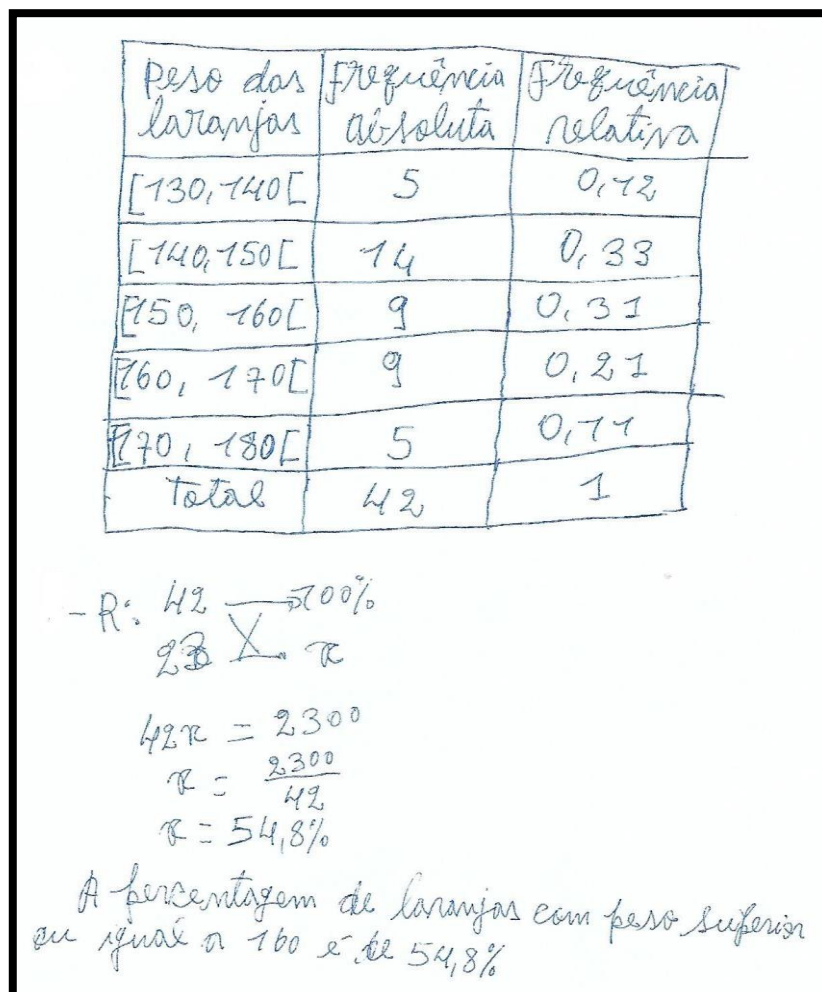 Peso das laranjas Frequência absoluta Frequência relativa
[130,140[ 5 0,12
[140,150[ 14 0,33
[150, 160[ 9 0,31
[160, 170[ 9 0,21
[170, 180[ 5 0,11
Total 42 1
- R: 42 → 100%
23 x
42x = 2300
x = 2300/42
x = 54,8%
A percentagem de laranjas com peso superior
ou igual a 160 é de 54,8%